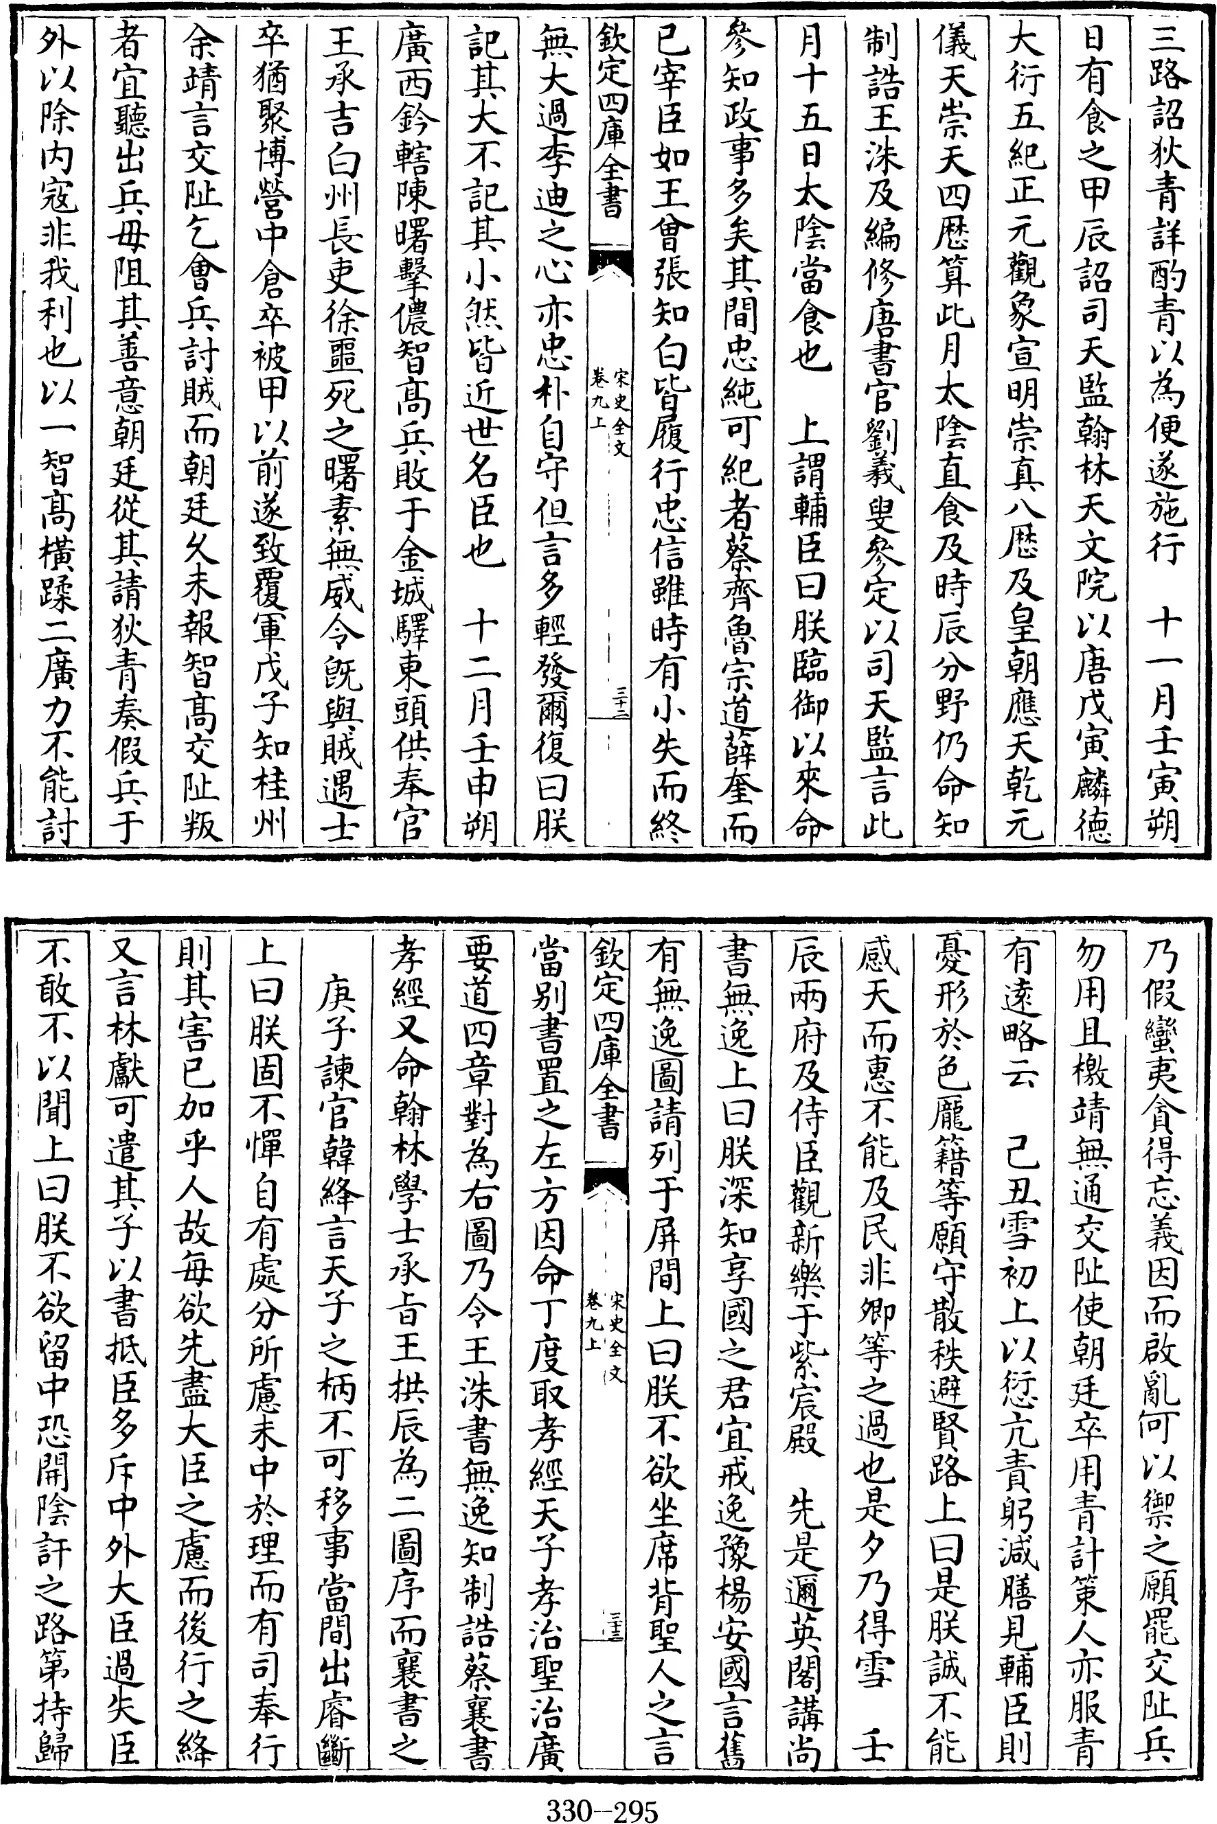 三路詔狄青詳酌青以為便遂施行　十一月壬寅朔
日有食之甲辰詔司天監翰林天文院以唐戊寅麟德
大衍五紀正元觀象宣明崇真八歴及皇朝應天乾元
儀天崇天四歴算此月太陰直食及時辰分野仍命知
制誥王洙及編修唐書官劉羲叟參定以司天監言此
月十五日太陰當食也　上謂輔臣曰朕臨御以來命
參知政事多矣其間忠純可紀者蔡齊魯宗道薛奎而
已宰臣如王曾張知白皆履行忠信雖時有小失而終
欽定四庫全書
宋史全文
卷九上
三十二
無大過李迪之心亦忠朴自守但言多輕發爾復曰朕
記其大不記其小然皆近世名臣也　十二月壬申朔
廣西鈐轄陳曙擊儂智高兵敗于金城驛東頭供奉官
王承吉白州長吏徐噩死之曙素無威令既與賊遇士
卒猶聚博營中倉卒被甲以前遂致覆軍戊子知桂州
余靖言交阯乞會兵討賊而朝廷久未報智高交阯叛
者宜聽出兵毋阻其善意朝廷從其請狄青奏假兵于
外以除内寇非我利也以一智高橫蹂二廣力不能討
乃假蠻夷貪得忘義因而啟亂何以禦之願罷交阯兵
勿用且檄靖無通交阯使朝廷卒用青計策人亦服青
有遠略云　己丑雪初上以愆亢責躬減膳見輔臣則
憂形於色龎籍等願守散秩避賢路上曰是朕誠不能
感天而惠不能及民非卿等之過也是夕乃得雪　壬
辰兩府及侍臣觀新樂于紫宸殿　先是邇英閣講尚
書無逸上曰朕深知享國之君宜戒逸豫楊安國言舊
有無逸圖請列于屏間上曰朕不欲坐席背聖人之言
欽定四庫全書
宋史全文
卷九上
三十三
當别書置之左方因命丁度取孝經天子孝治聖治廣
要道四章對為右圖乃令王洙書無逸知制誥蔡襄書
孝經又命翰林學士承旨王拱辰為二圖序而襄書之
庚子諫官韓絳言天子之柄不可移事當間出睿斷
上曰朕固不憚自有處分所慮未中於理而有司奉行
則其害已加乎人故每欲先盡大臣之慮而後行之絳
又言林獻可遣其子以書抵臣多斥中外大臣過失臣
不敢不以聞上曰朕不欲留中恐開陰訐之路第持歸
330-295